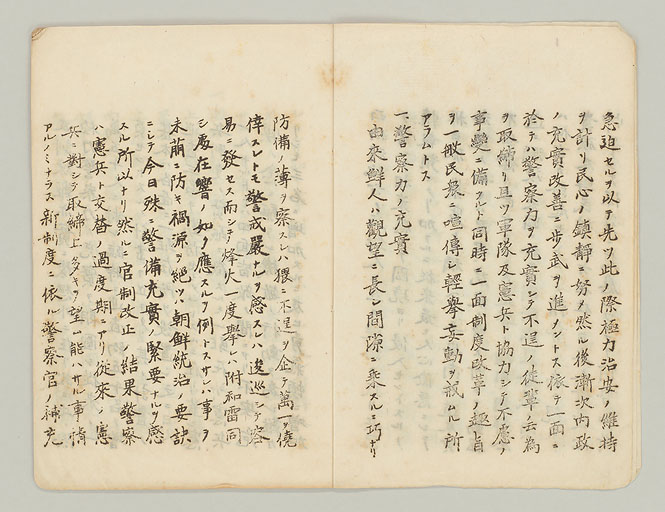 急迫セルヲ以テ先ツ此ノ際極力治安ノ維持
ヲ計リ民心ノ鎮靜ニ努メ然ル後漸次内政
ノ充實改善ニ歩武ヲ進メントス依テ一面ニ
於テハ警察力ヲ充實シテ不逞ノ徒輩ノ云為
ヲ取締リ且ツ軍隊及憲兵ト協力シテ不慮ノ
事變ニ備フルト同時ニ一面制度改革ノ趣旨
ヲ一般民衆ニ喧傳シ輕擧妄動ヲ戒ムル所
アラムトス
一、警察力ノ充實
由來鮮人ハ觀望ニ長シ間隙ニ乗スルニ巧ナリ
防備ノ薄ヲ察スレハ猥ニ不逞ヲ企テ萬一ヲ僥
倖スレトモ警戒嚴ナルヲ感スレハ逡巡シテ容
易ニ發セス而シテ烽火一度擧レハ附和雷同
シ處在響ノ如ク應スルヲ例トスサレハ事ヲ
未萠ニ防キ禍源ヲ絶ツハ朝鮮統治ノ要訣
ニシテ今日殊ニ警備充實ノ緊要ナルヲ感
スル所以ナリ然ルニ官制改正ノ結果警察
ハ憲兵ト交替ノ過度期ニアリ從來ノ憲
兵ニ對シテ取締上多キヲ望ム能ハサル事情
アルノミナラス新制度ニ依ル警察官ノ補充